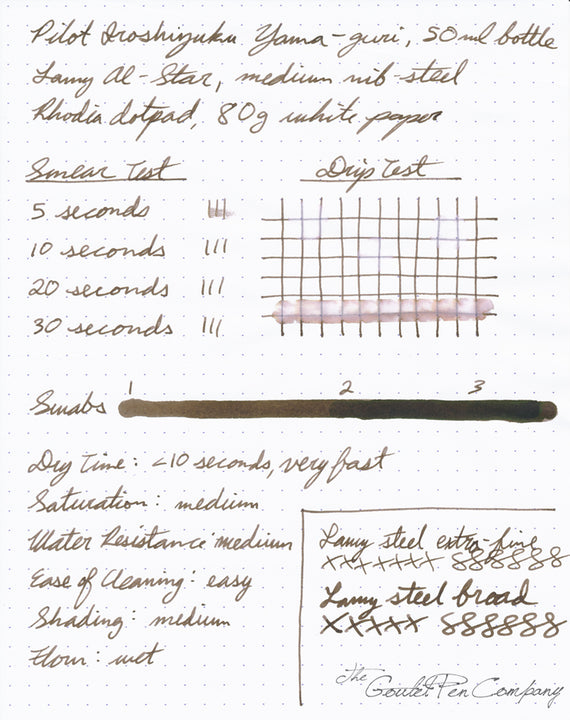 Pilot Iroshizuku Yama-guri, 50ml bottle
Lamy Al-Star, medium nib-steel
Rhodia dotpad, 80g white paper
Smear Test
5 seconds
10 seconds
20 seconds
30 seconds
Drip Test
Swabs 1 2 3
Dry Time: <10 seconds, very fast
Saturation: medium
Water Resistance: medium
Ease of Cleaning: easy
Shading: medium
Flow: wet
Lamy steel extra-fine
xxxxxxx 8888888
Lamy steel broad
xxxxx 888888
The Goulet Pen Company